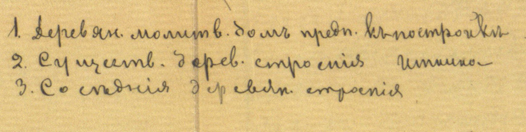 1. Деревян. молитв. домъ предп. къ постройкѣ
2. Существ. дерев. строенія
3. Сосѣднія деревян. строенія